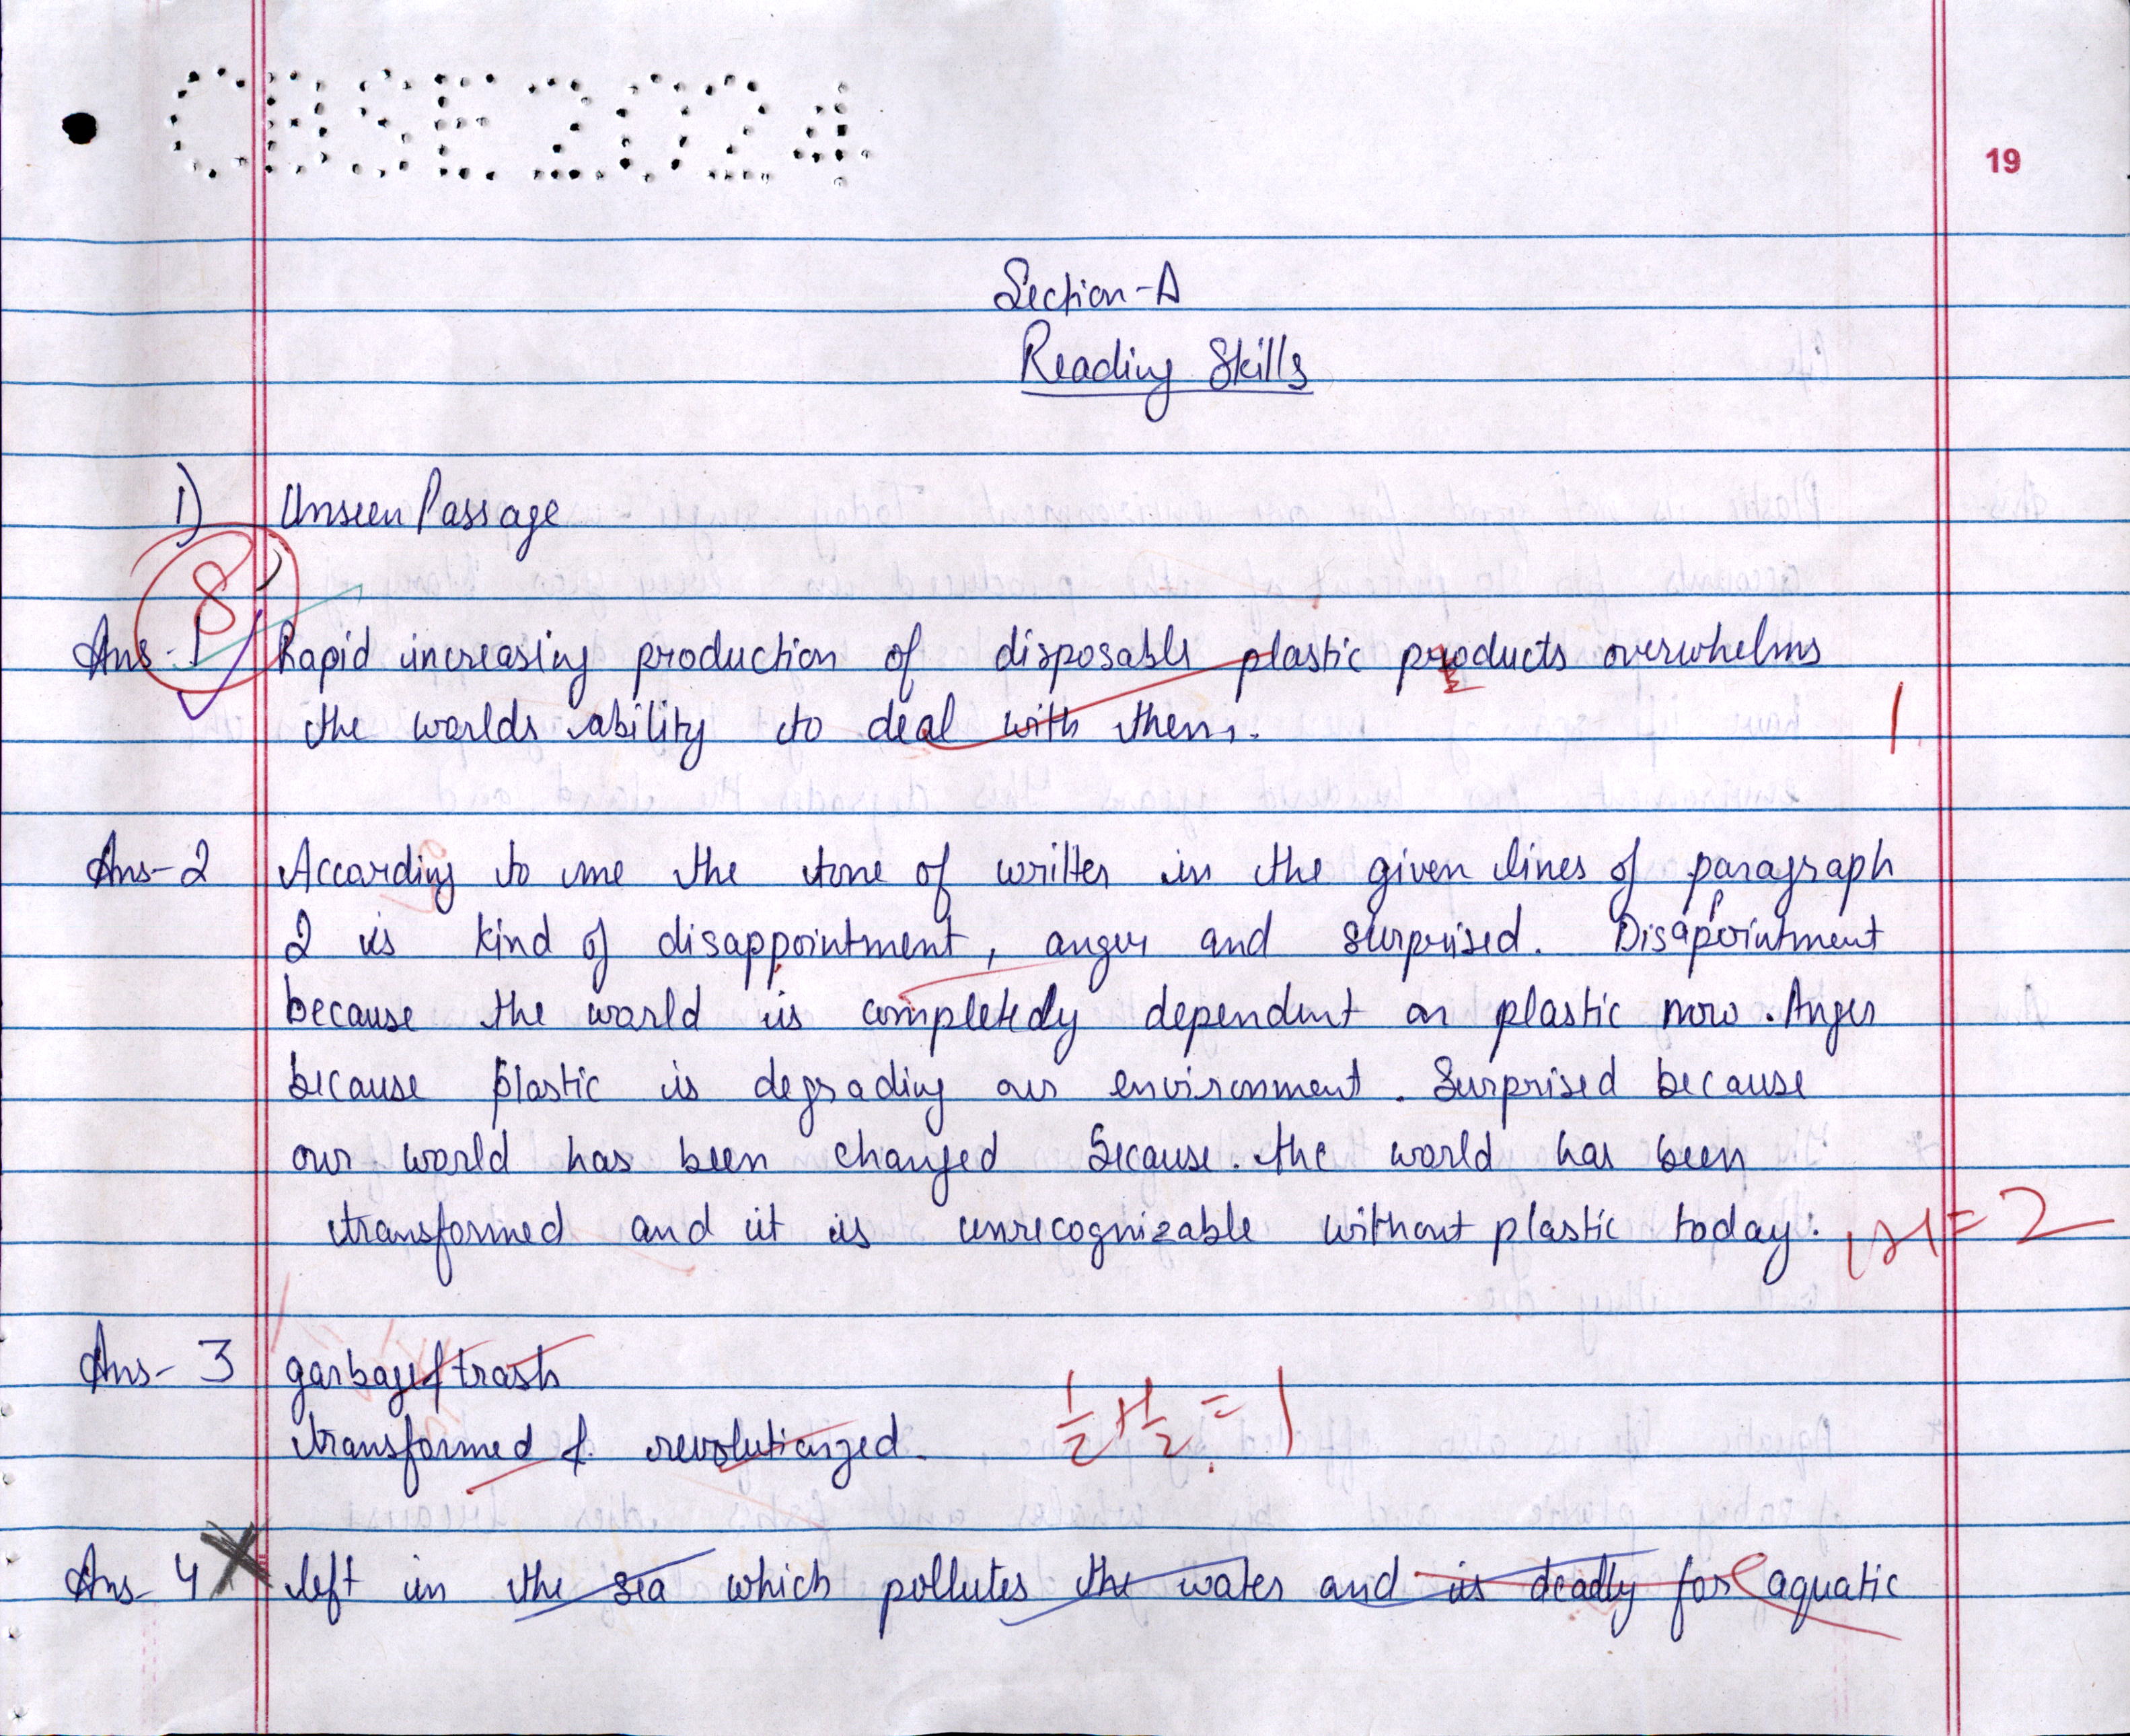 CBSE 2024
19
Section-A
Reading Skills
1) Unseen Passage
8
Ans-1 Rapid increasing production of disposable plastic products overwhelms
the worlds ability to deal with them.
1
Ans-2 According to me the tone of writter in the given lines of paragraph
2 is kind of disappointment, anger and surprised. Disappointment
because the world is completely dependent on plastic now. Anger
because plastic is degrading our environment. Surprised because
our world has been changed because. the world has been
transformed and it is unrecognizable without plastic today.
1+1=2
Ans-3 garbage & trash
transformed & revolutionzed.
1/2+1/2=1
Ans-4 left in the sea which pollutes the water and is deadly for aquatic